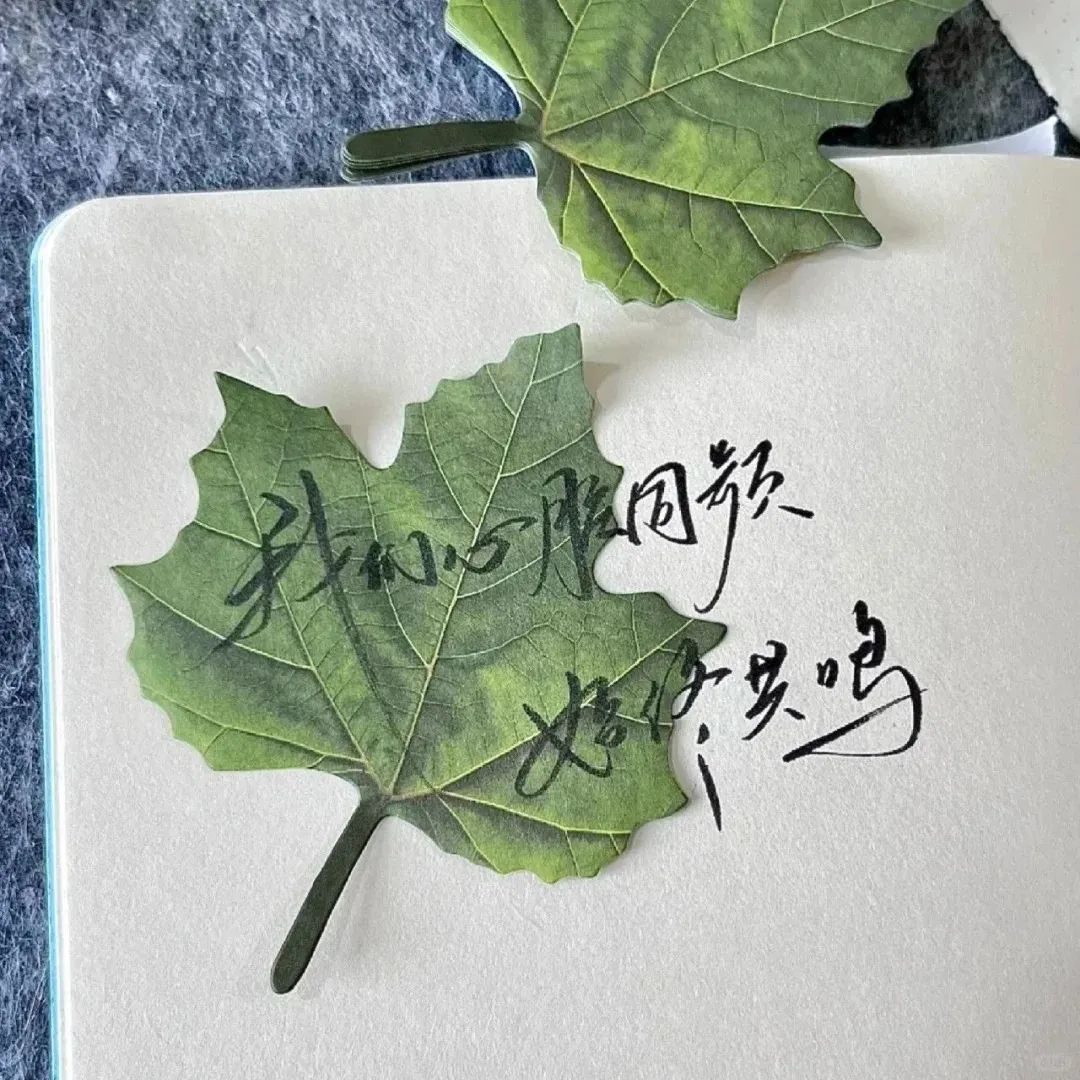 我们心脏同频
始终共鸣